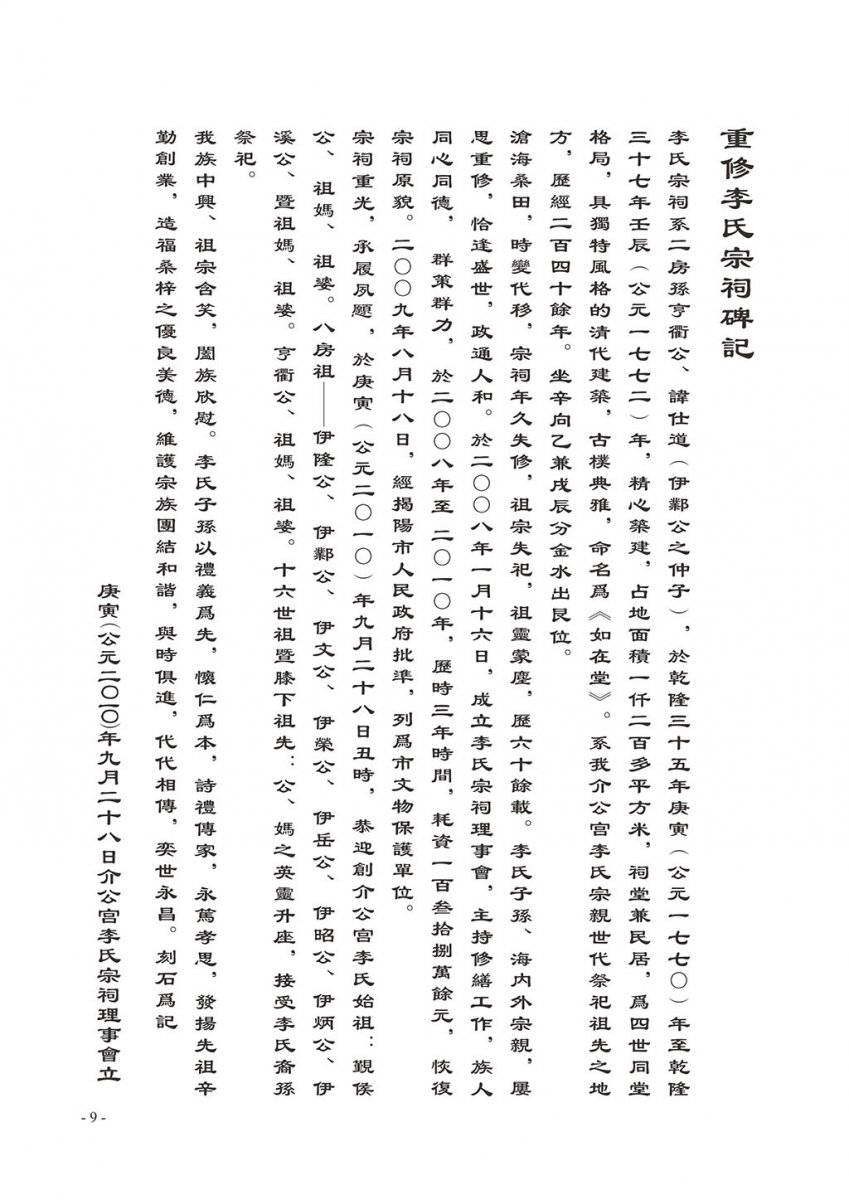 重修李氏宗祠碑記
李氏宗祠系二房孫亨衢公、諱仕道（伊鄴公之仲子），於乾隆三十五年庚寅（公元一七七〇）年至乾隆
三十七年壬辰（公元一七七二）年，精心築建，占地面積一仟二百多平方米，祠堂兼民居，爲四世同堂
格局，具獨特風格的清代建築，古樸典雅，命名爲《如在堂》。系我介公宫李氏宗親世代祭祀祖先之地
方，歷經二百四十餘年。坐辛向乙兼戌辰分金水出艮位。
滄海桑田，時變代移，宗祠年久失修，祖宗失祀，祖靈蒙塵，歷六十餘載。李氏子孫、海内外宗親，屢
思重修，恰逢盛世，政通人和。於二〇〇八年一月十六日，成立李氏宗祠理事會，主持修繕工作，族人
同心同德，群策群力，於二〇〇八年至二〇一〇年，歷時三年時間，耗資一百叁拾捌萬餘元，恢復
宗祠原貌。二〇〇九年八月十八日，經揭陽市人民政府批準，列爲市文物保護單位。
宗祠重光，承履夙願，於庚寅（公元二〇一〇）年九月二十八日丑時，恭迎創介公宫李氏始祖：覲侯
公、祖媽、祖婆。八房祖——伊隆公、伊鄴公、伊文公、伊榮公、伊岳公、伊昭公、伊炳公、伊
溪公、暨祖媽、祖婆。亨衢公、祖媽、祖婆。十六世祖暨膝下祖先：公、媽之英靈升座，接受李氏裔孫
祭祀。
我族中興、祖宗含笑，闔族欣慰。李氏子孫以禮義爲先，懷仁爲本，詩禮傳家，永篤孝思，發揚先祖辛
勤創業，造福桑梓之優良美德，維護宗族團結和諧，與時俱進，代代相傳，奕世永昌。刻石爲記
庚寅（公元二〇一〇）年九月二十八日介公宫李氏宗祠理事會立
- 9 -